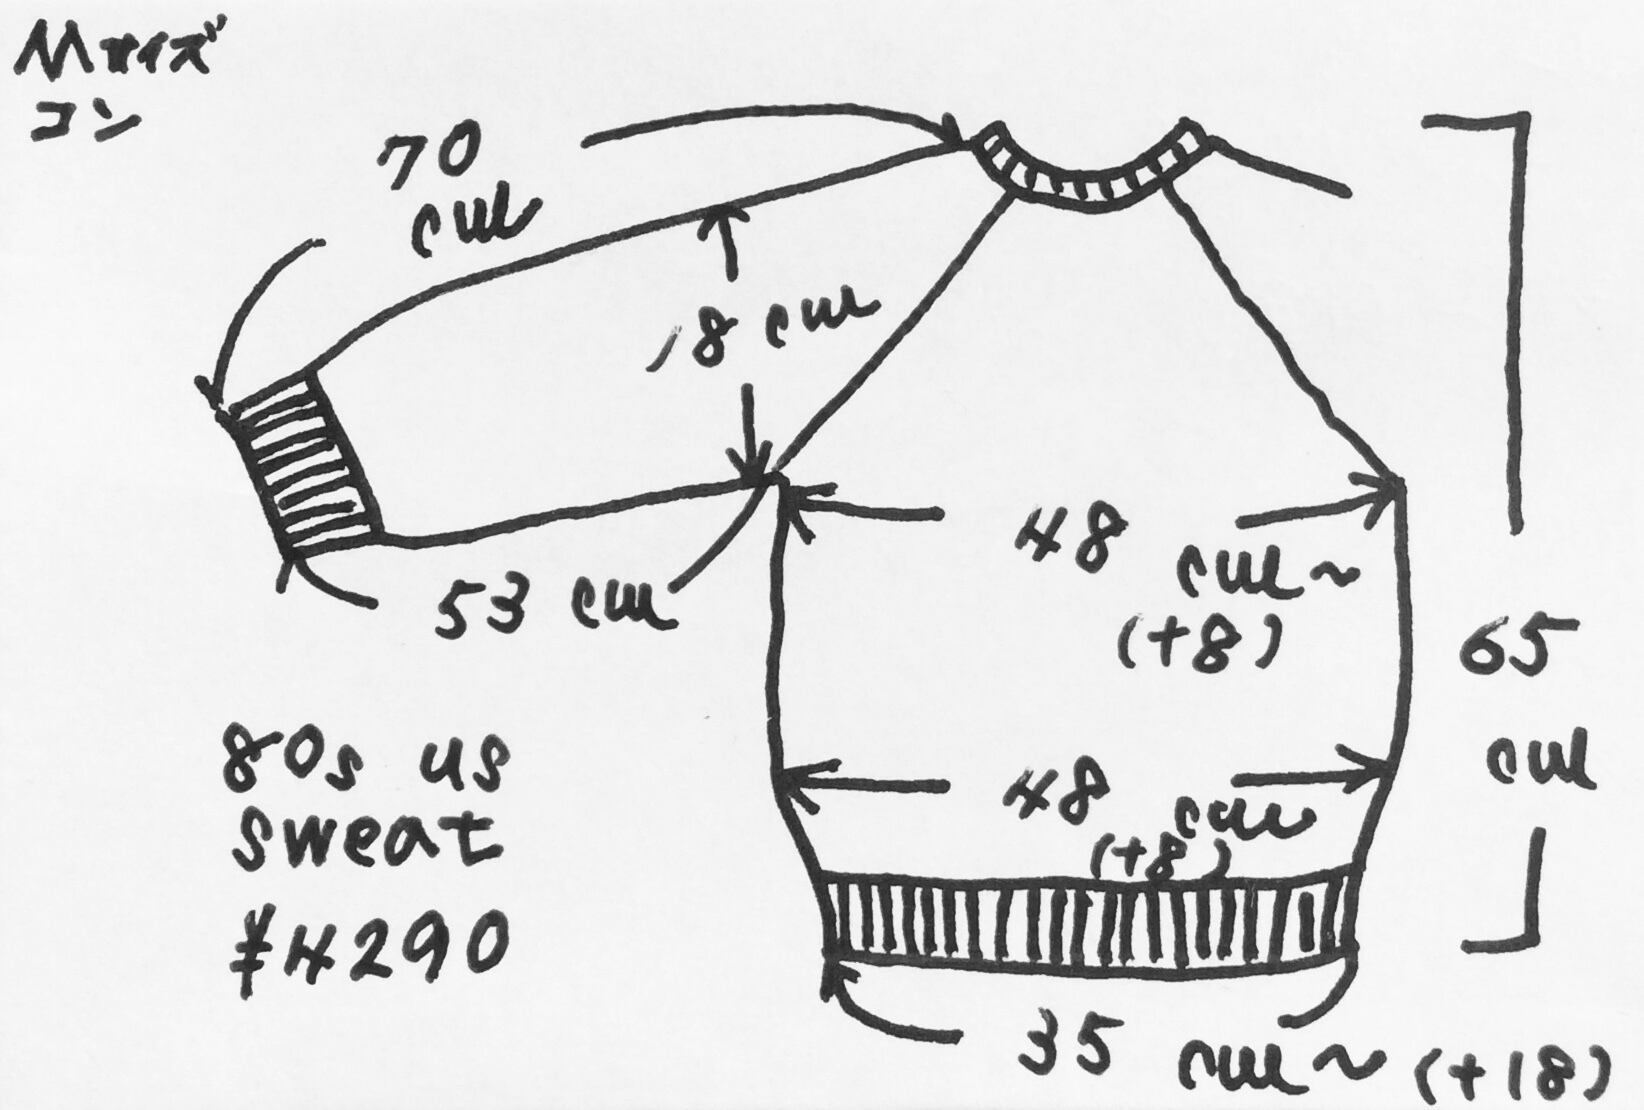 Mサイズ
コン
70
cm
18 cm
48 cm~
(+8)
53 cm
65
cm
80s us
sweat
¥4290
48 cm
(+8)
35 cm~ (+18)